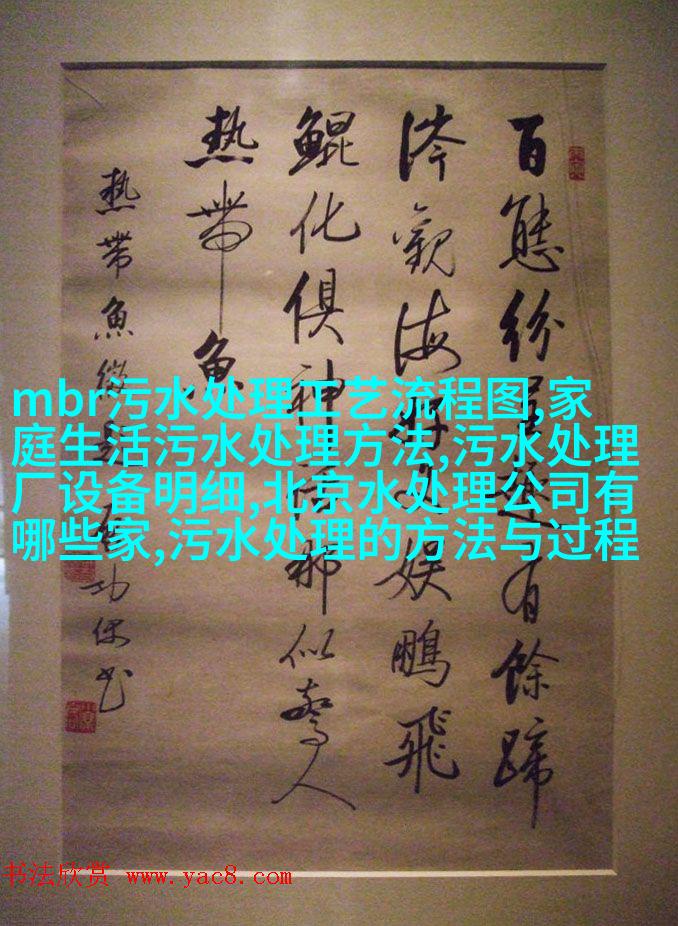 百態紛呈有餘蹄
涔觀海文娛鵬飛
鯤化俱神話那似驚人
熱帶魚
熱帶魚徵題 功
mbr污水处理工艺流程图,家
庭生活污水处理方法,污水处理
厂设备明细,北京水处理公司有
哪些家,污水处理的方法与过程
书法欣赏 www.yac8.com